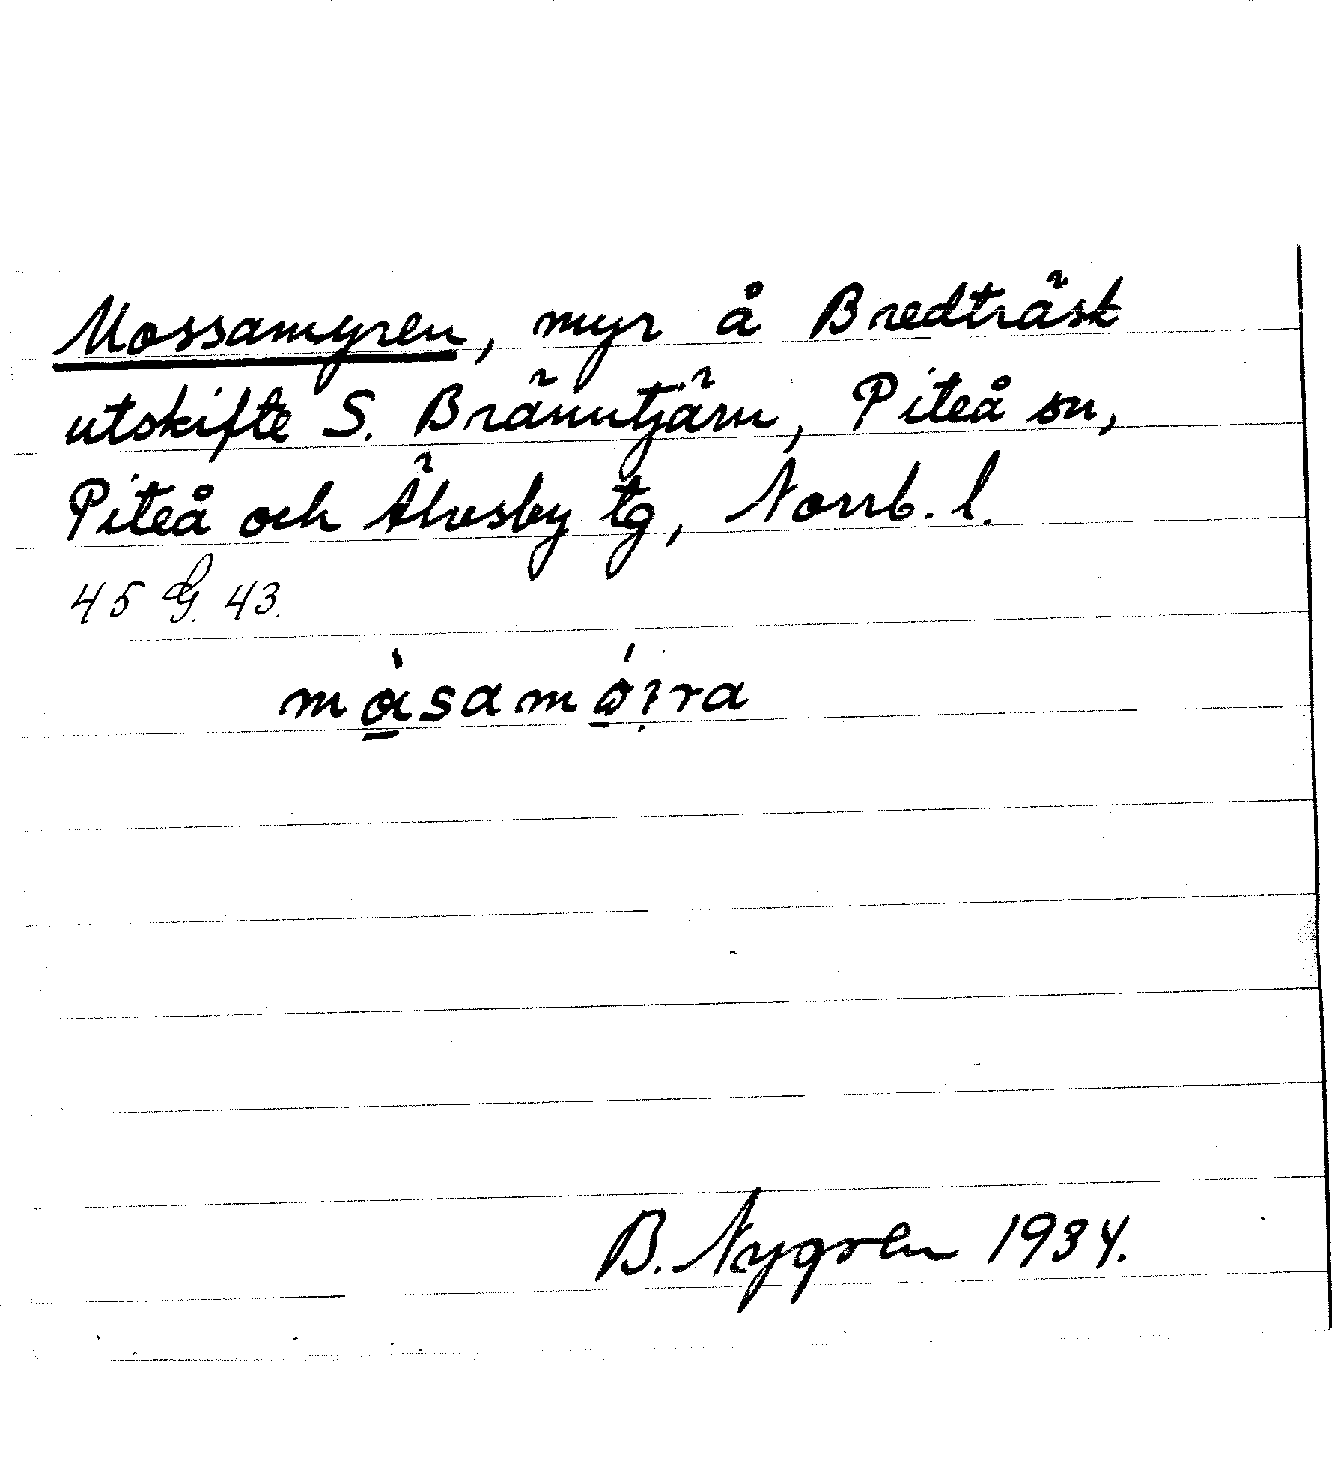 Mossamyren, myr å Bredträsk
utskifte S. Bränntjärn, Piteå sn,
Piteå och Älvsby tg, Norrb. l.
45 G. 43.
B. Nygren 1934.